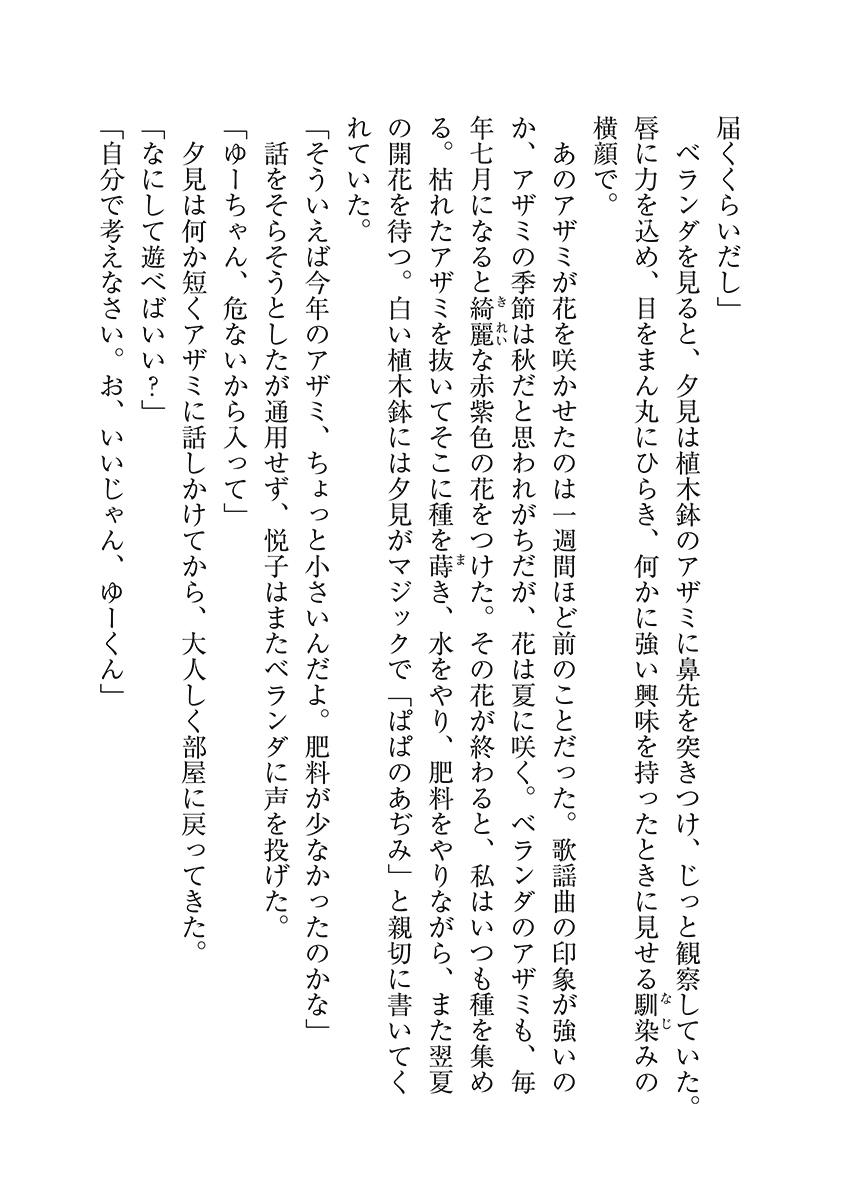 届くくらいだし」
ベランダを見ると、夕見は植木鉢のアザミに鼻先を突きつけ、じっと観察していた。
唇に力を込め、目をまん丸にひらき、何かに強い興味を持ったときに見せる馴染みの
横顔で。
あのアザミが花を咲かせたのは一週間ほど前のことだった。歌謡曲の印象が強いの
か、アザミの季節は秋だと思われがちだが、花は夏に咲く。ベランダのアザミも、毎
年七月になると綺麗な赤紫色の花をつけた。その花が終わると、私はいつも種を集め
る。枯れたアザミを抜いてそこに種を蒔き、水をやり、肥料をやりながら、また翌夏
の開花を待つ。白い植木鉢には夕見がマジックで「ぱぱのあぢみ」と親切に書いてく
れていた。
「そういえば今年のアザミ、ちょっと小さいんだよ。肥料が少なかったのかな」
話をそらそうとしたが通用せず、悦子はまたベランダに声を投げた。
「ゆーちゃん、危ないから入って」
夕見は何か短くアザミに話しかけてから、大人しく部屋に戻ってきた。
「なにして遊べばいい？」
「自分で考えなさい。お、いいじゃん、ゆーくん」